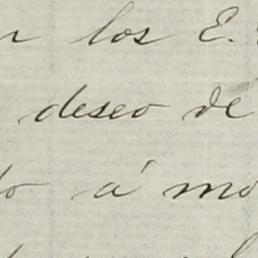 los E.
deseo de
á mo